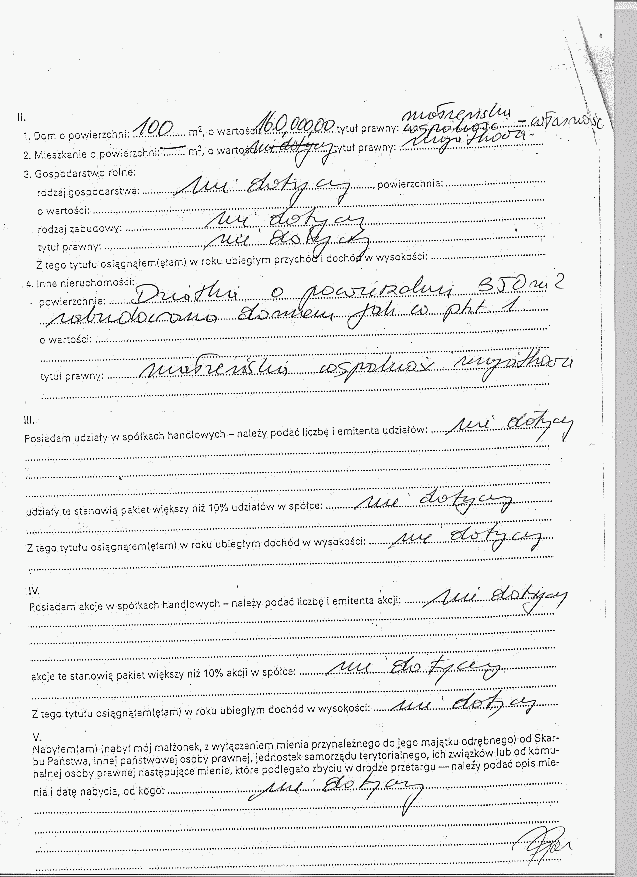 II.
małżeńska
1. Dom o powierzchni: 100 m², o wartości 160.000,00 tytuł prawny: wspólność – własność
2. Mieszkanie o powierzchni: — m², o wartości nie dotyczy tytuł prawny: majątkowa
3. Gospodarstwo rolne:
rodzaj gospodarstwa: nie dotyczy powierzchnia:
o wartości:
rodzaj zabudowy: nie dotyczy
tytuł prawny: nie dotyczy
Z tego tytułu osiągnąłem(ęłam) w roku ubiegłym przychód i dochód w wysokości:
4. Inne nieruchomości:
powierzchnia: Działka o powierzchni 350 m2
zabudowana domem jak w pkt 1
o wartości:
tytuł prawny: małżeńska wspólność majątkowa
III.
Posiadam udziały w spółkach handlowych – należy podać liczbę i emitenta udziałów: nie dotyczy
udziały te stanowią pakiet większy niż 10% udziałów w spółce: nie dotyczy
Z tego tytułu osiągnąłem(ęłam) w roku ubiegłym dochód w wysokości: nie dotyczy
IV.
Posiadam akcje w spółkach handlowych – należy podać liczbę i emitenta akcji: nie dotyczy
akcje te stanowią pakiet większy niż 10% akcji w spółce: nie dotyczy
Z tego tytułu osiągnąłem(ęłam) w roku ubiegłym dochód w wysokości: nie dotyczy
V.
Nabyłem(am) (nabył mój małżonek, z wyłączeniem mienia przynależnego do jego majątku odrębnego) od Skar-
bu Państwa, innej państwowej osoby prawnej, jednostek samorządu terytorialnego, ich związków lub od komu-
nalnej osoby prawnej następujące mienie, które podlegało zbyciu w drodze przetargu — należy podać opis mie-
nia i datę nabycia, od kogo: nie dotyczy